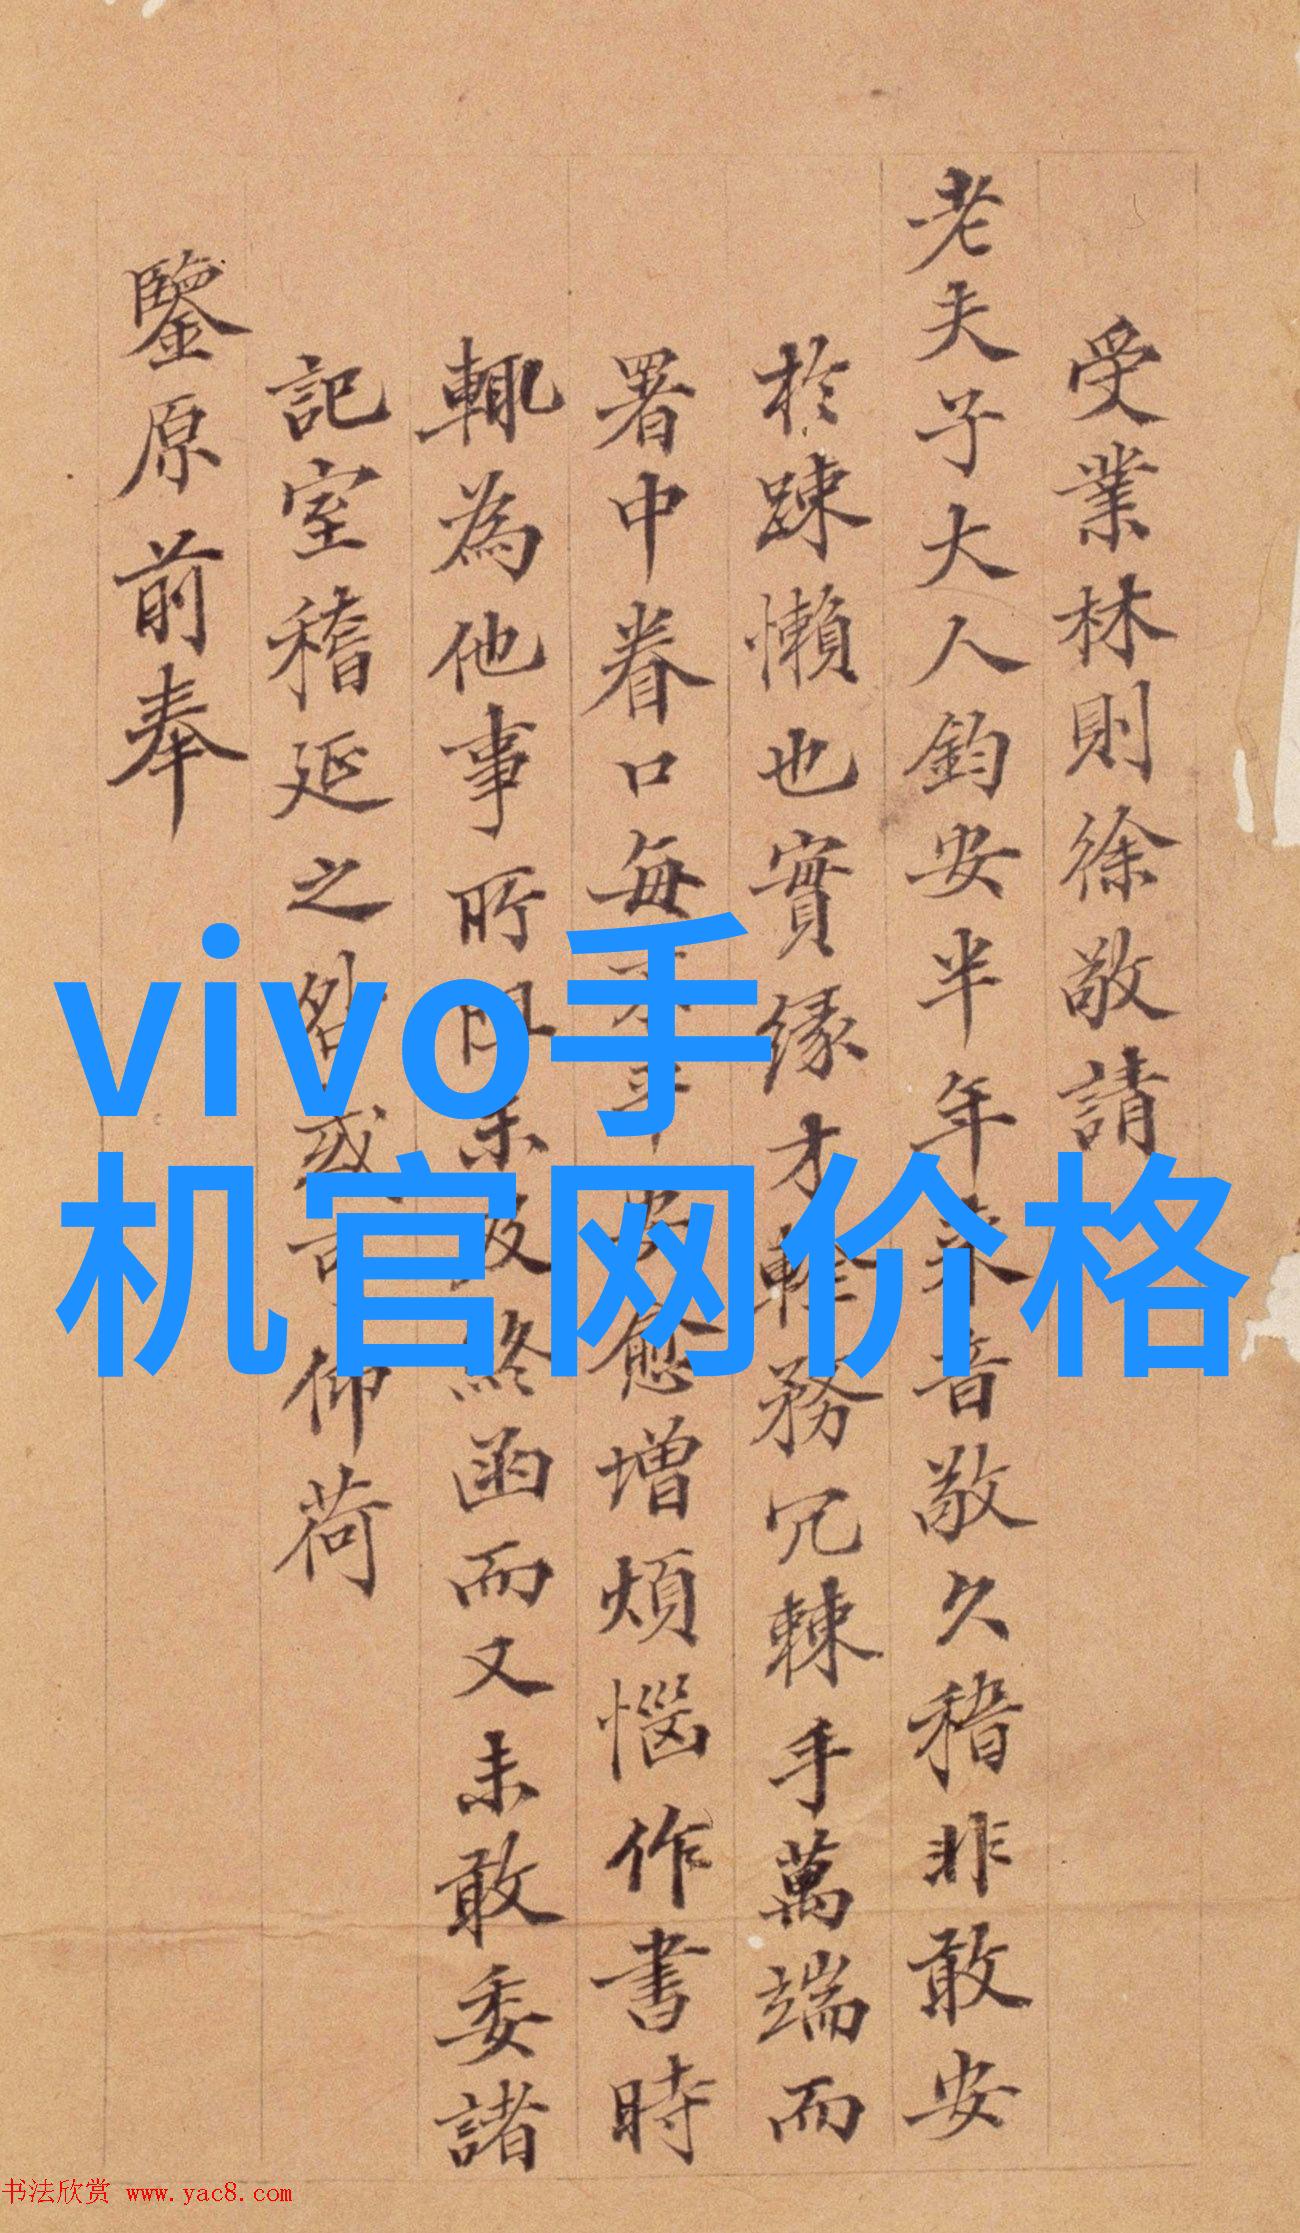 受業林則徐敬請
老夫子大人鈞安半年来音敬久稽非敢安
於踈懶也實緣才輕務冗棘手萬端而
署中眷口每
愈增煩惱作書時
輒為他事所阻未及終函而又未敢委諸
記室稽延之
仰荷
鑒原前奉
vivo手
机官网价格
书法欣赏 www.yac8.com